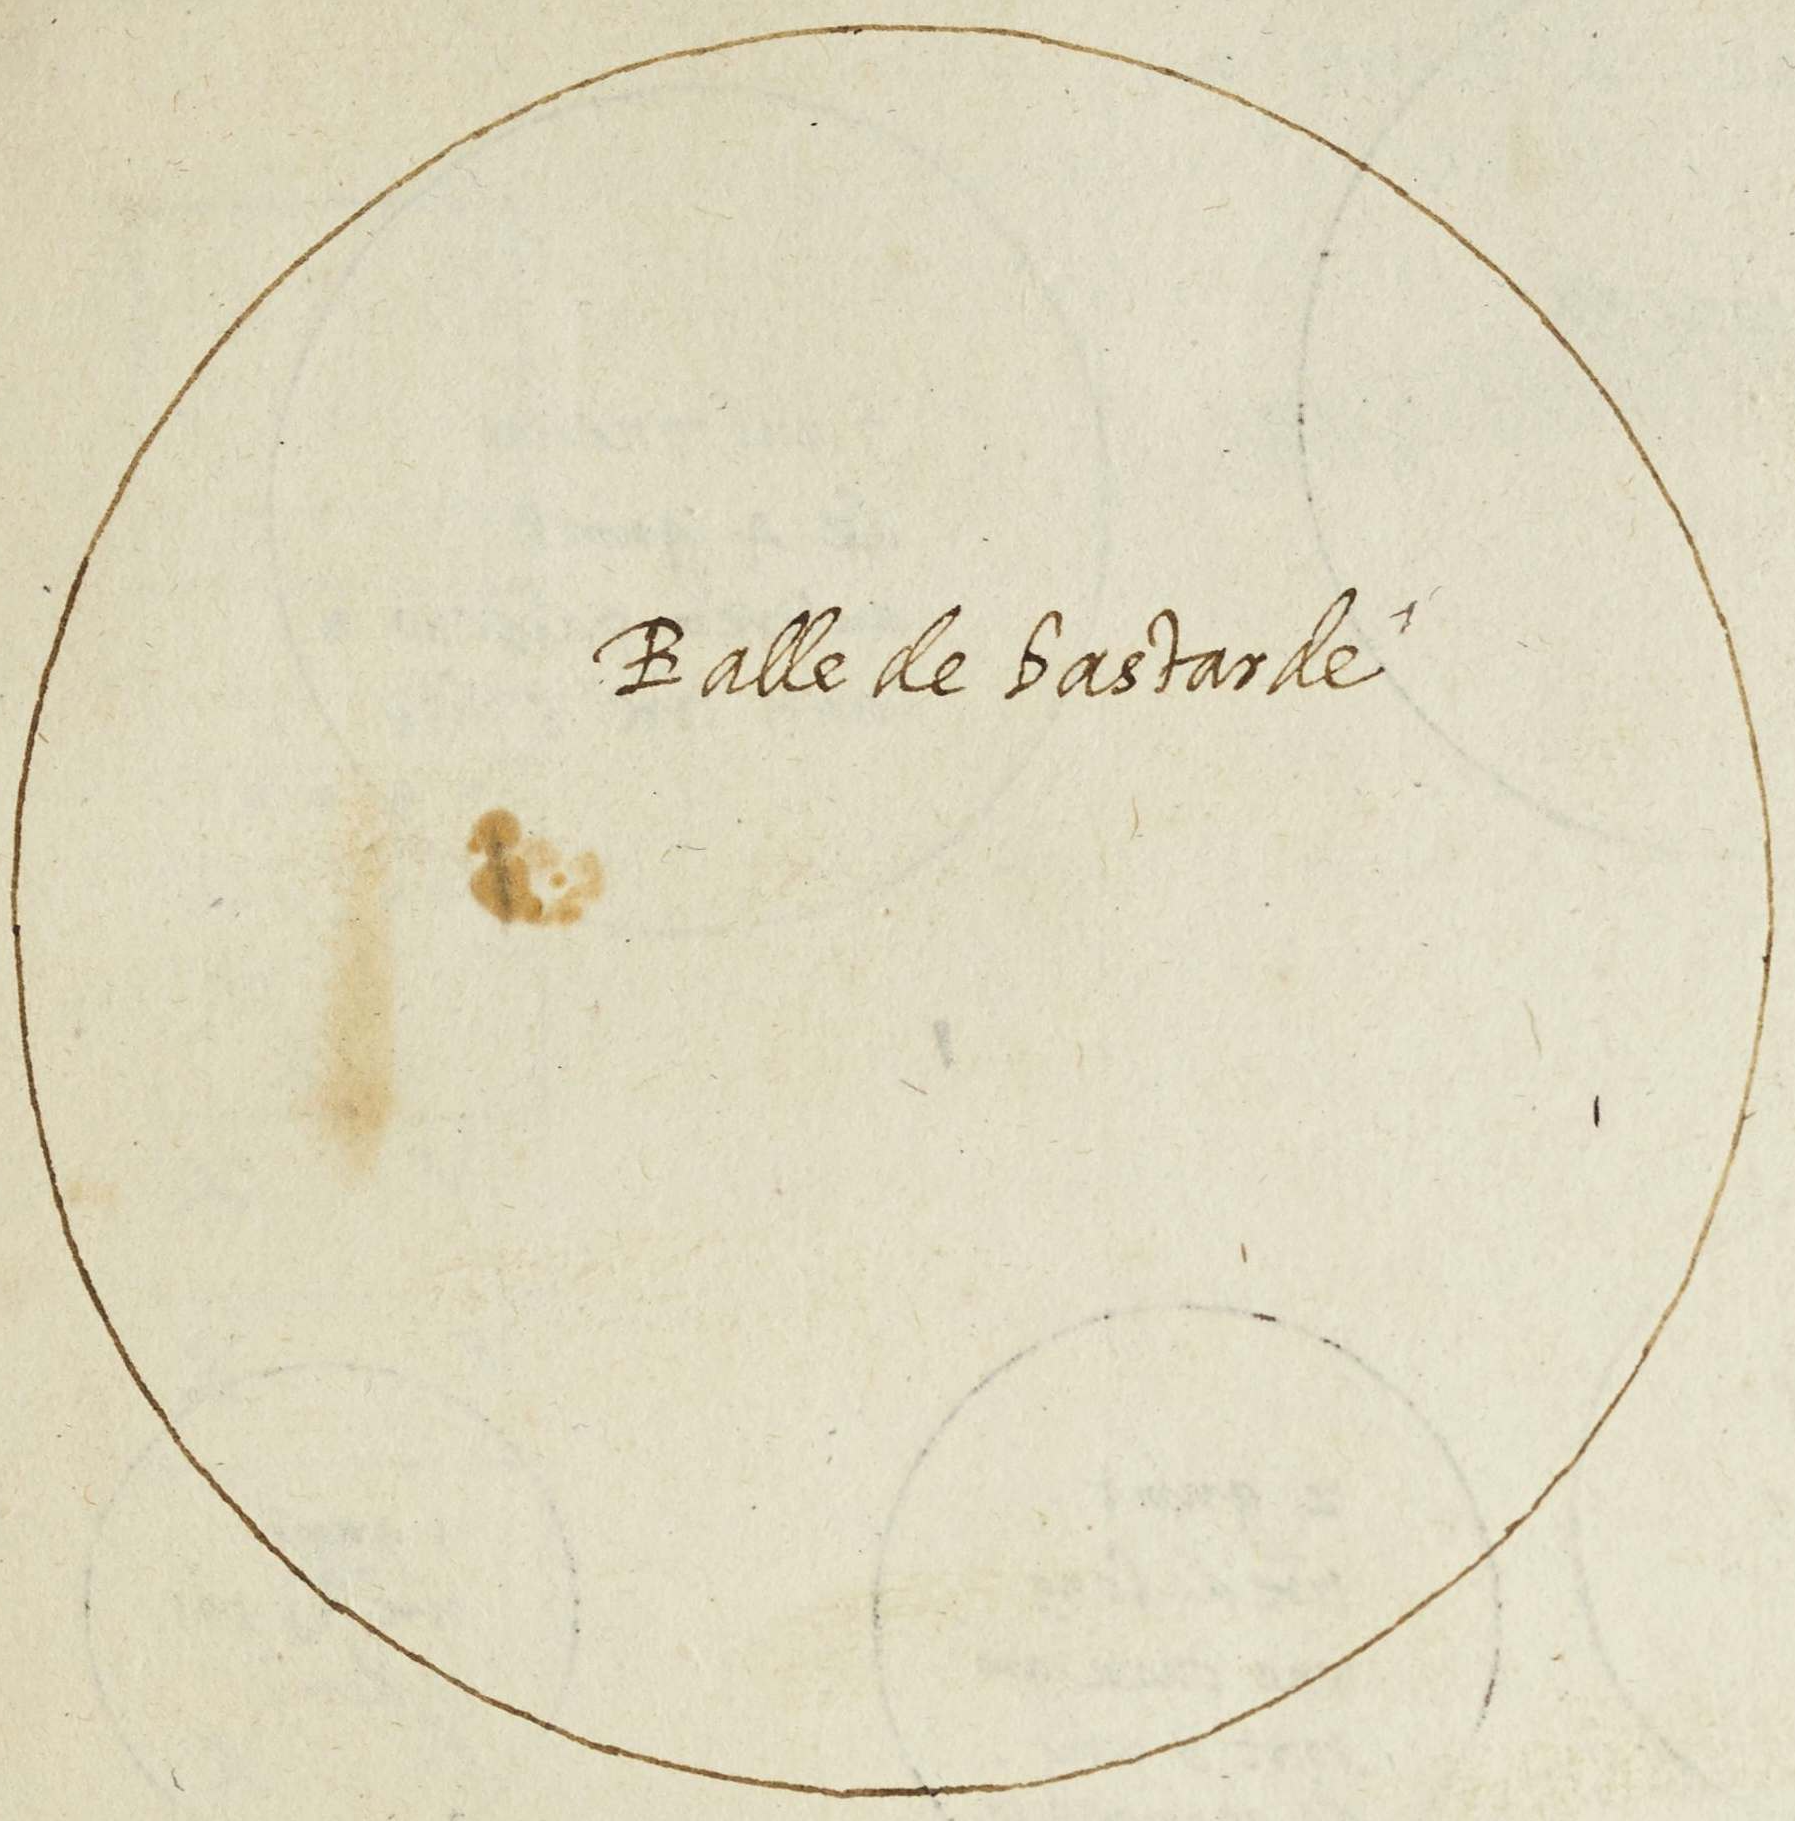 Balle de bastarde